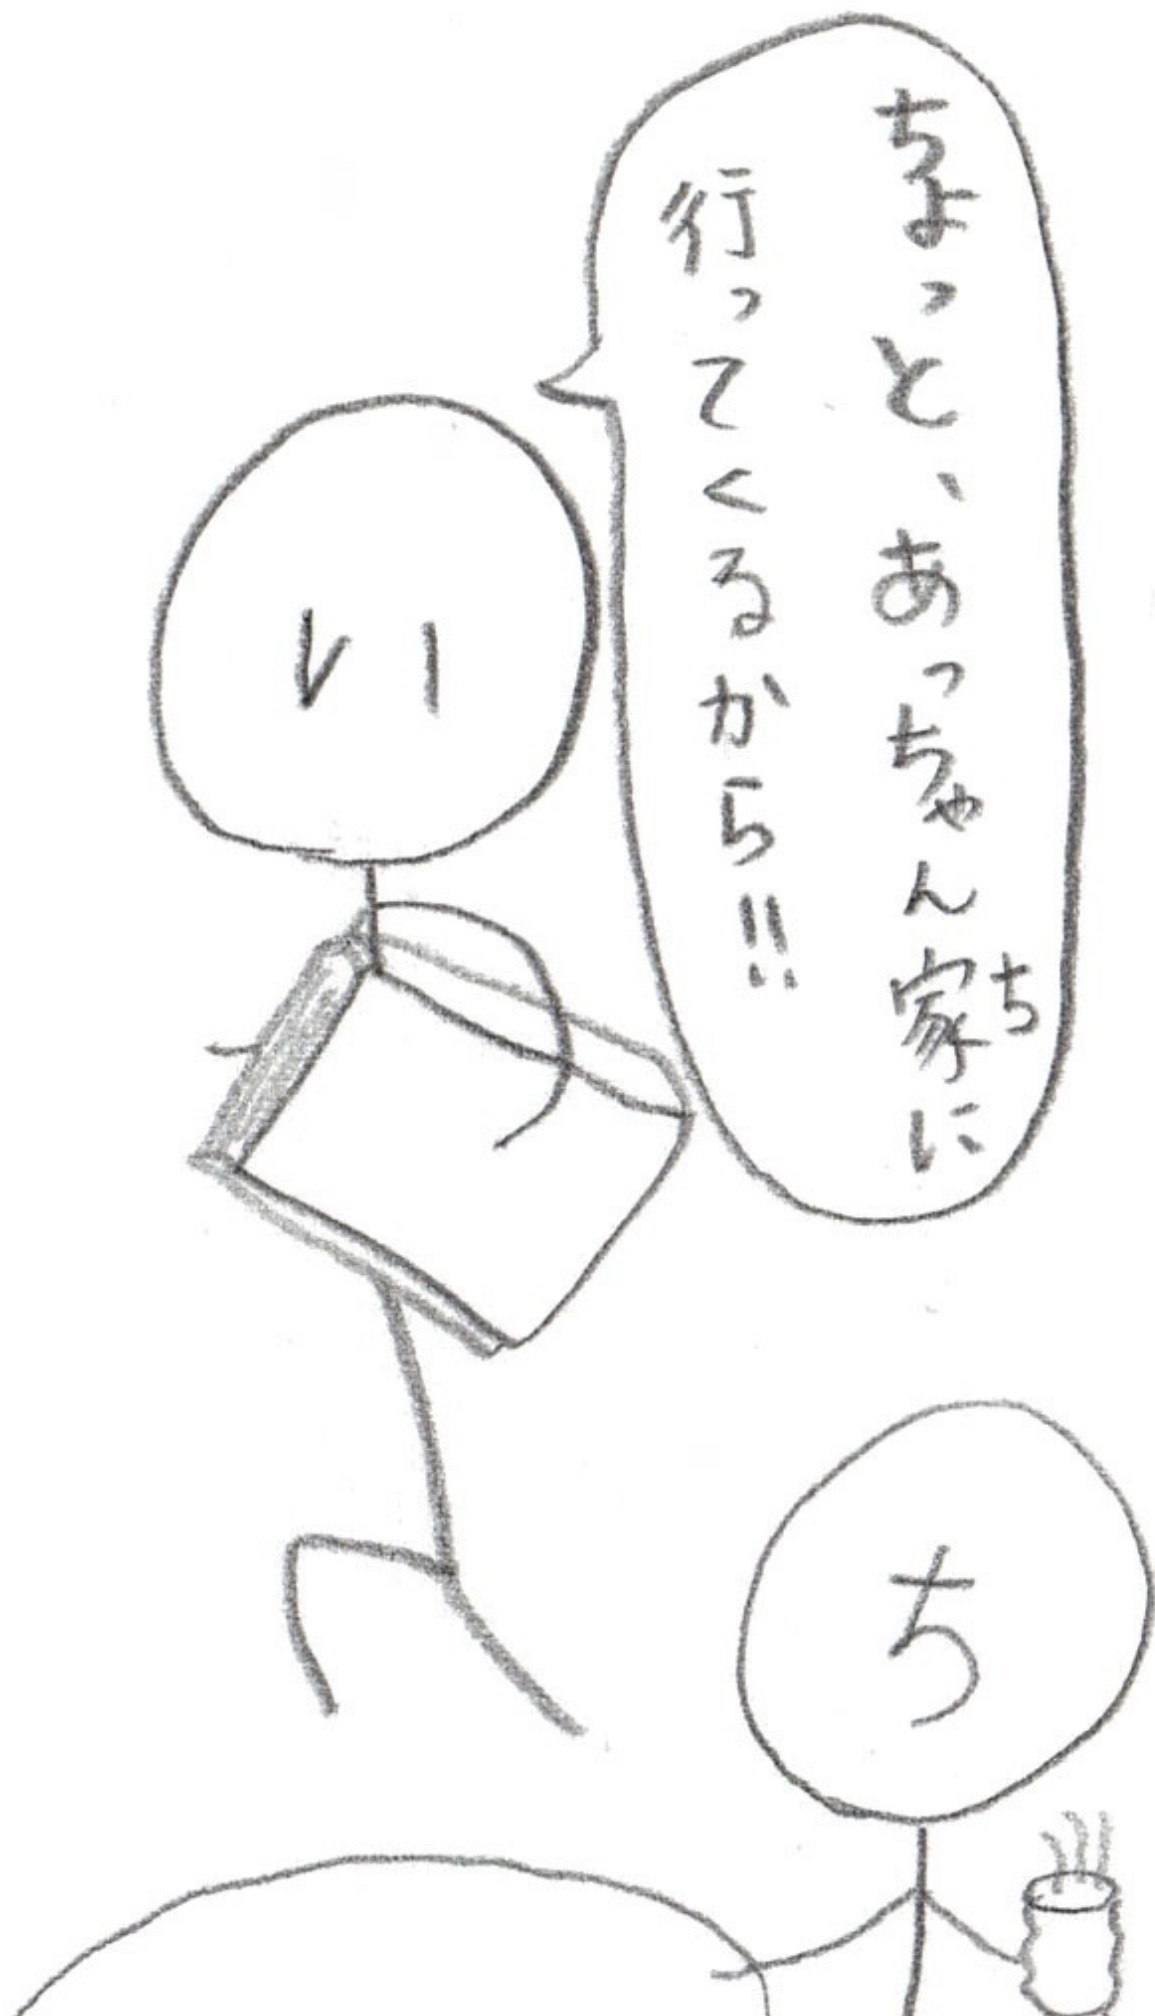 ちょっと、あっちゃん家に
ち
行ってくるから!!
い
ち